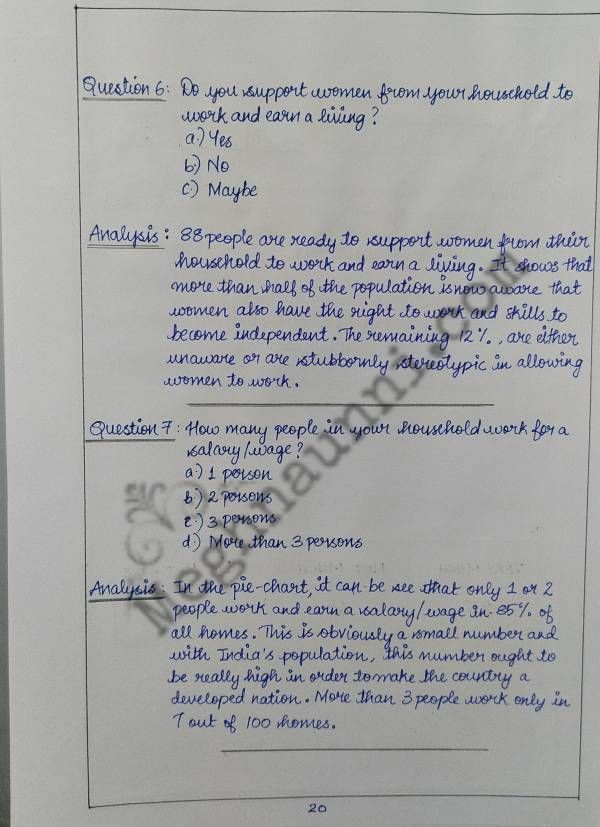 Question 6: Do you support women from your household to
work and earn a living?
a.) Yes
b.) No
c.) Maybe
Analysis: 88 people are ready to support women from their
household to work and earn a living. It shows that
more than half of the population is now aware that
women also have the right to work and skills to
become independent. The remaining 12%., are either
unaware or are stubbornly stereotypic in allowing
women to work.
Question 7: How many people in your household work for a
salary/wage?
a.) 1 person
b.) 2 persons
c.) 3 persons
d.) More than 3 persons
Analysis: In the pie-chart, it can be see that only 1 or 2
people work and earn a salary/wage in 85% of
all homes. This is obviously a small number and
with India's population, this number ought to
be really high in order to make the country a
developed nation. More than 3 people work only in
7 out of 100 homes.
20
Meghnaunni.com